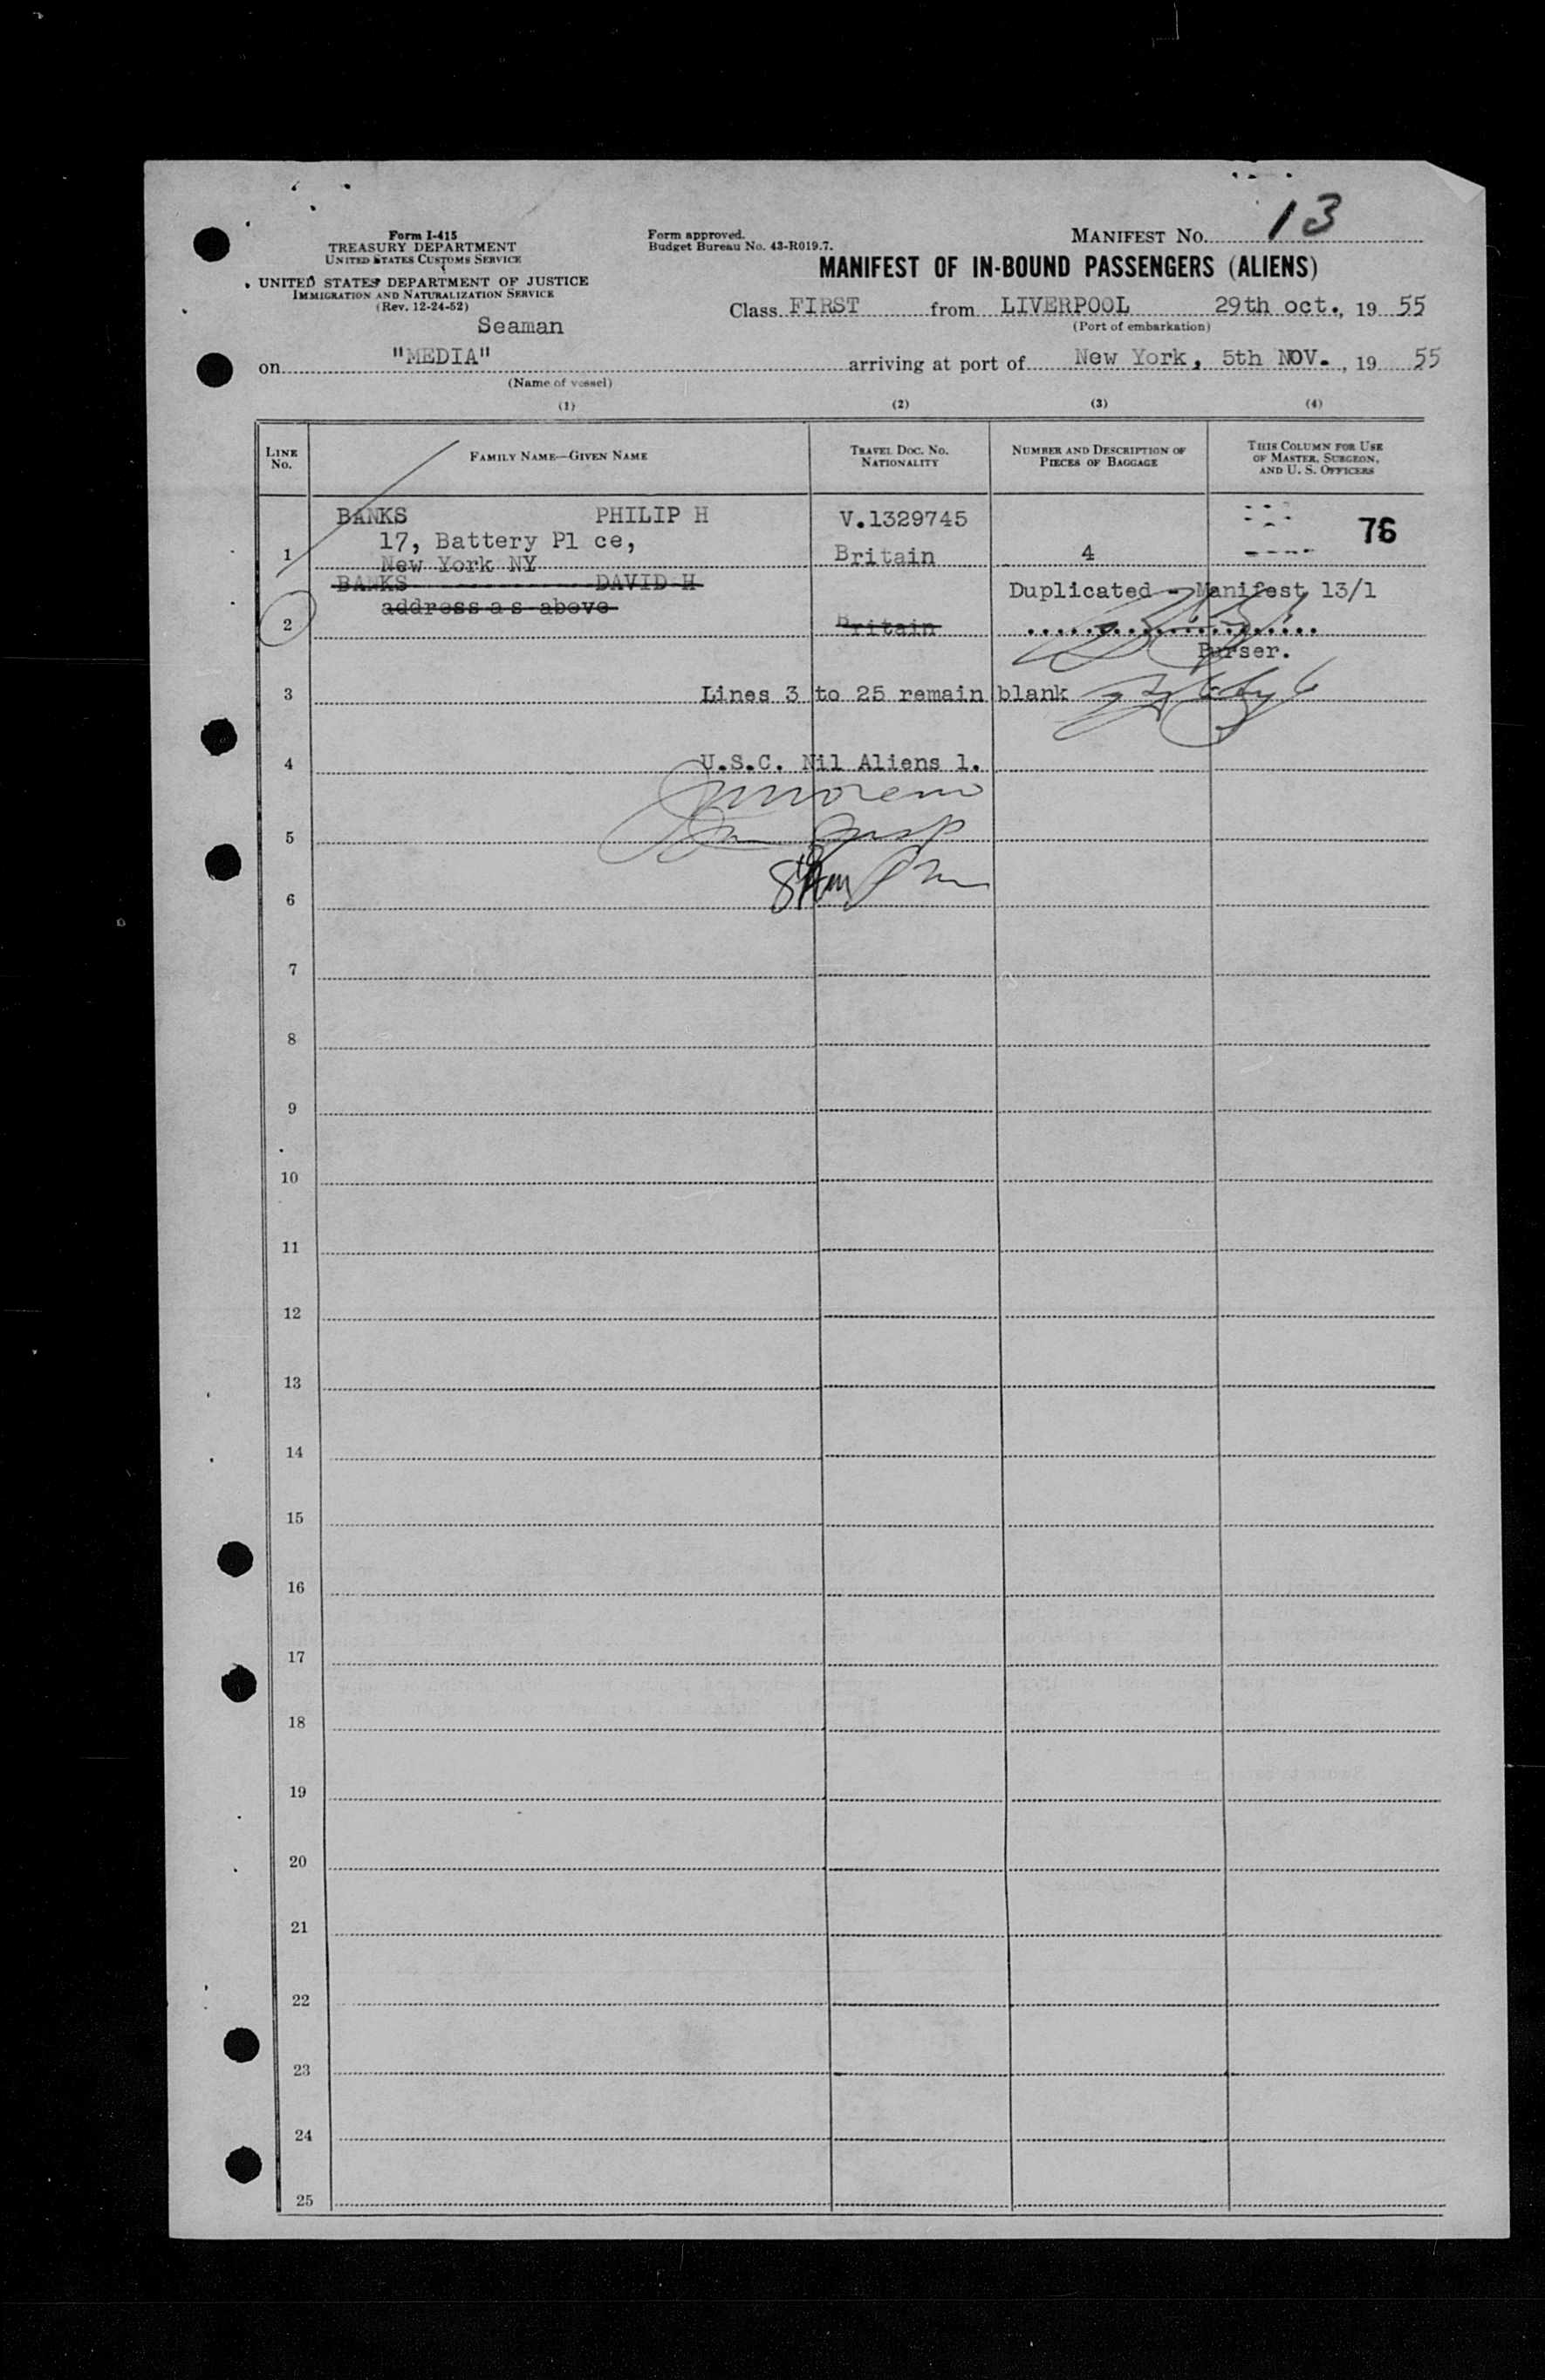 13
Form I-415
TREASURY DEPARTMENT
UNITED STATES CUSTOMS SERVICE
UNITED STATES DEPARTMENT OF JUSTICE
IMMIGRATION AND NATURALIZATION SERVICE
(Rev. 12-24-52)
Form approved.
Budget Bureau No. 43-R019.7.
MANIFEST NO.
MANIFEST OF IN-BOUND PASSENGERS (ALIENS)
Class FIRST from LIVERPOOL 29th oct., 19 55
(Port of embarkation)
Seaman
on "MEDIA" arriving at port of New York, 5th NOV., 19 55
(Name of vessel)
(1) (2) (3) (4)
LINE NO. FAMILY NAME—GIVEN NAME TRAVEL DOC. NO. NATIONALITY NUMBER AND DESCRIPTION OF PIECES OF BAGGAGE THIS COLUMN FOR USE OF MASTER, SURGEON, AND U. S. OFFICERS
BANKS PHILIP H V.1329745 76
17, Battery Pl ce,
1 New York NY Britain 4
BANKS DAVID H Duplicated - Manifest 13/1
address as above
2 Britain
Purser.
3 Lines 3 to 25 remain blank
4 U.S.C. Nil Aliens 1.
5
6
7
8
9
10
11
12
13
14
15
16
17
18
19
20
21
22
23
24
25